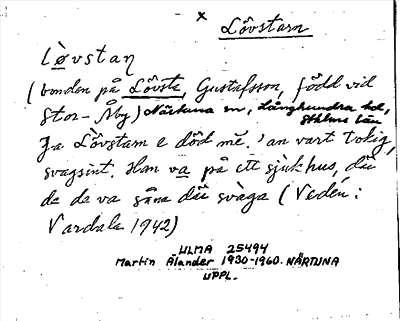 x
Lövstarn
lø̀vstaṇ
(bonden på Lövsta, Gustafsson, född vid
Stor-Åby) Närtuna sn, Långhundra hd,
Sthlms län
Ja Lövstarn e död mę̄. 'an vart tokig,
svagsint. Han va på ett sjukhus, dä
de da va såna dä svàga (Vedén:
Vardala 1942)
ULMA 25494
Martin Ålander 1930-1960. NÄRTUNA
UPPL.